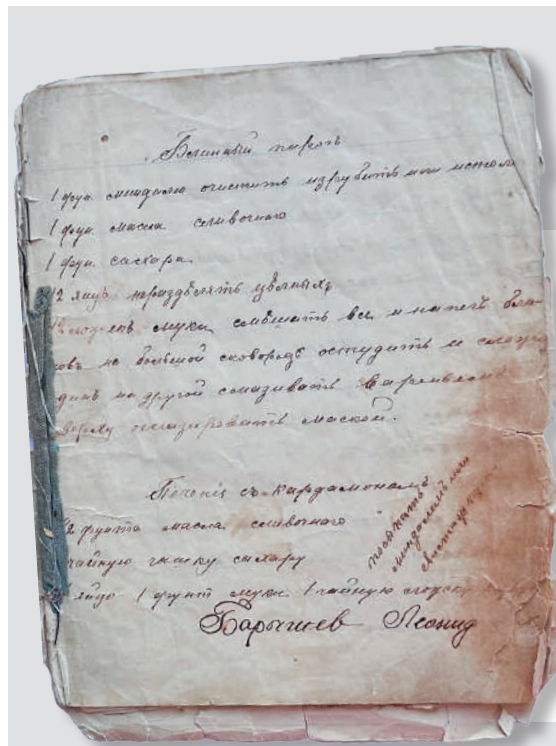 Блинный пирогъ
1 фун. миндалю очистить изрубить или истол
1 фун. масла сливочного
1 фун. сахара.
12 яицъ нераздѣлять цѣльныхъ
муки смѣшать все и напечь бли-
ковъ на большой сковородѣ остудить и
динъ на другой смазывать вареньемъ
верху оглазировать маской.
Печеніе съ кардамономъ
2 фунта масла сливочного
чайную чашку сахару
яйцо 1 фунт муки 1 чайную
посыпать
миндалемъ или
фисташками
Барышев Леонид